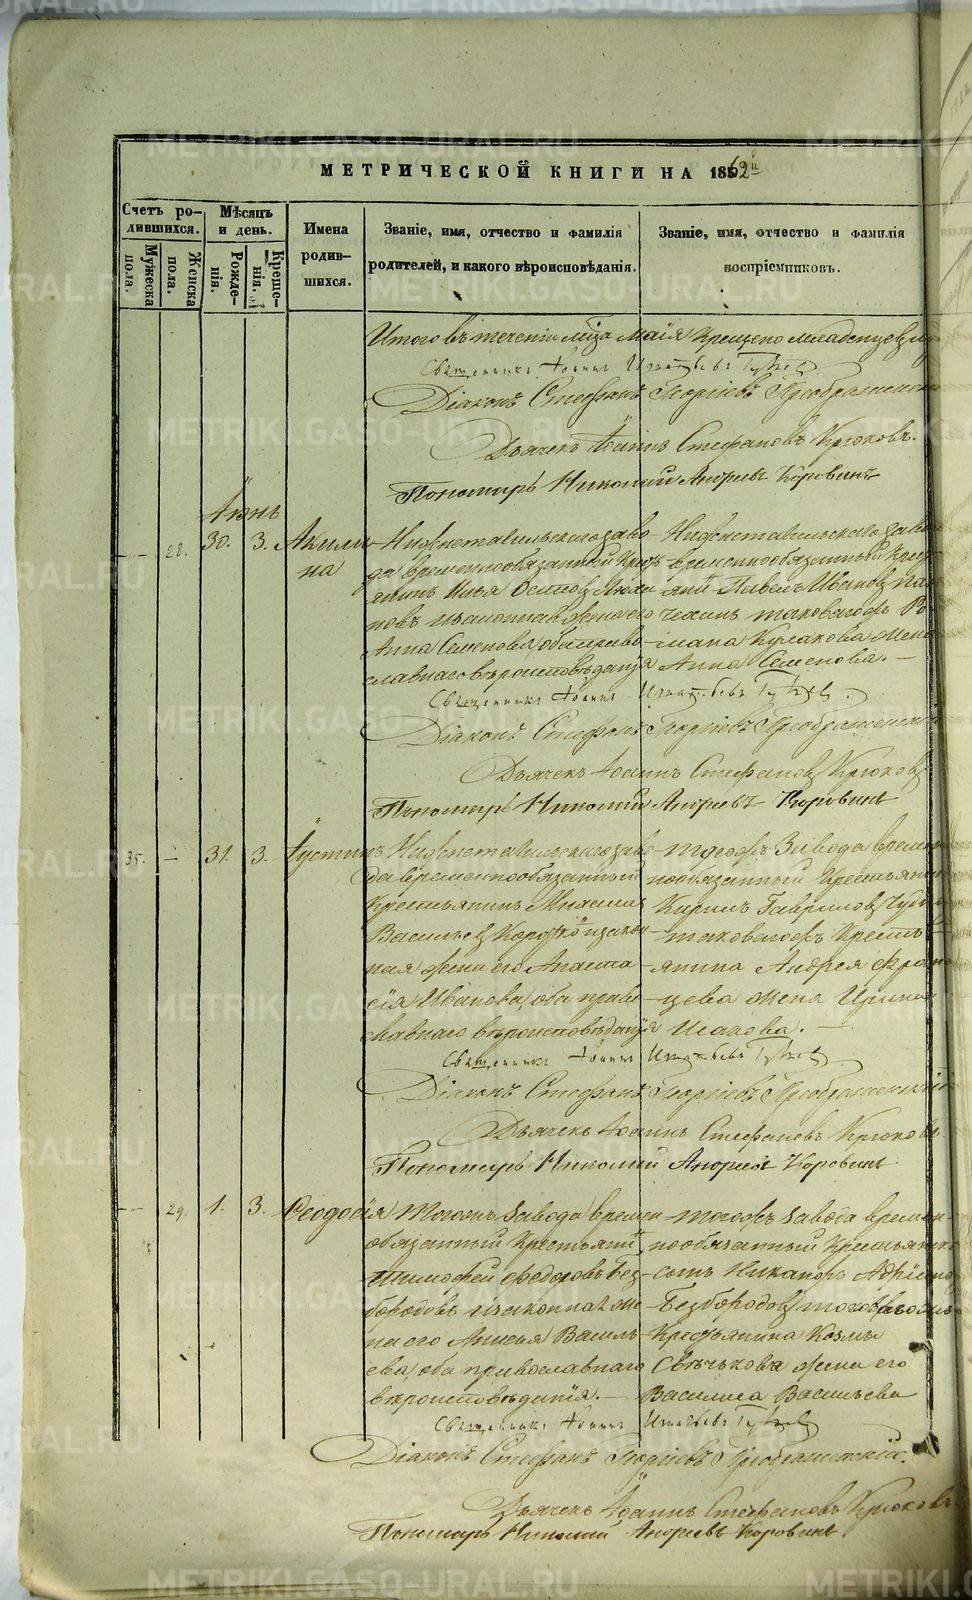 МЕТРИЧЕСКОЙ КНИГИ НА 1862й
Счетъ родившихся.
Мѣсяцъ и день.
Имена родившихся.
Званіе, имя, отчество и фамилія родителей, и какого вѣроисповѣданія.
Званіе, имя, отчество и фамилія воспріемниковъ.
Мужеска пола.
Женска пола.
Рожденія.
Крещенія.
Итого въ теченіи мѣсяца Маія Крещено младенцевъ
Священникъ Іоаннъ
Діаконъ Стефанъ Георгіевъ Преображенскій
Дьячекъ Іоаннъ Стефановъ Крюковъ.
Пономарь Николай Андреевъ Коровинъ
Іюнь
28. 30. 3. Акили-
на
Нижнетагильскаго заво-
да временнообязанный Крест-
янинъ Илья Осиповъ
законная жена его
Анна Семенова, оба право-
славнаго вѣроисповѣданія
Нижнетагильскаго заво-
временнообязанный Крест-
янинъ Павелъ Ивановъ
таковагожъ Ро-
мана Кулакова жена
Анна Семенова. —
Священникъ Іоаннъ
Діаконъ Стефанъ Георгіевъ Преображенскій
Дьячекъ Іоаннъ Стефановъ Крюковъ
Пономарь Николай Андреевъ Коровинъ
35. — 31. 3. Іустинъ
Нижнетагильскаго заво-
да временнообязанный
Крестьянинъ Михаилъ
Васильевъ закон-
ная жена его Анаста-
сія Иванова, оба право-
славнаго вѣроисповѣданія
Тогожъ Завода времен-
нообязанный Крестьянинъ
Кирилъ Гавриловъ
таковагожъ Крест-
янина Андрея
жена Ирина
Исакова. —
Священникъ Іоаннъ
Діаконъ Стефанъ Георгіевъ Преображенскій
Дьячекъ Іоаннъ Стефановъ Крюковъ
Пономарь Николай Андреевъ Коровинъ
— 29. 1. 3. Ѳеодосія
Тогожъ Завода времен-
обязанный Крестьянинъ
Тимофей Федоровъ Без-
бородовъ и законная же-
на его Анисья Василь-
ева, оба православнаго
вѣроисповѣданія. —
тогожъ завода времен-
нообязанный Крестьянск
сынъ Никаноръ
Безбородовъ,
Крестьянина Козмы
жена его
Василиса Васильева
Священникъ Іоаннъ
Діаконъ Стефанъ Георгіевъ Преображенскій.
Дьячекъ Іоаннъ Стефановъ Крюковъ
Пономарь Николай Андреевъ Коровинъ
METRIKI.GASO-URAL.RU